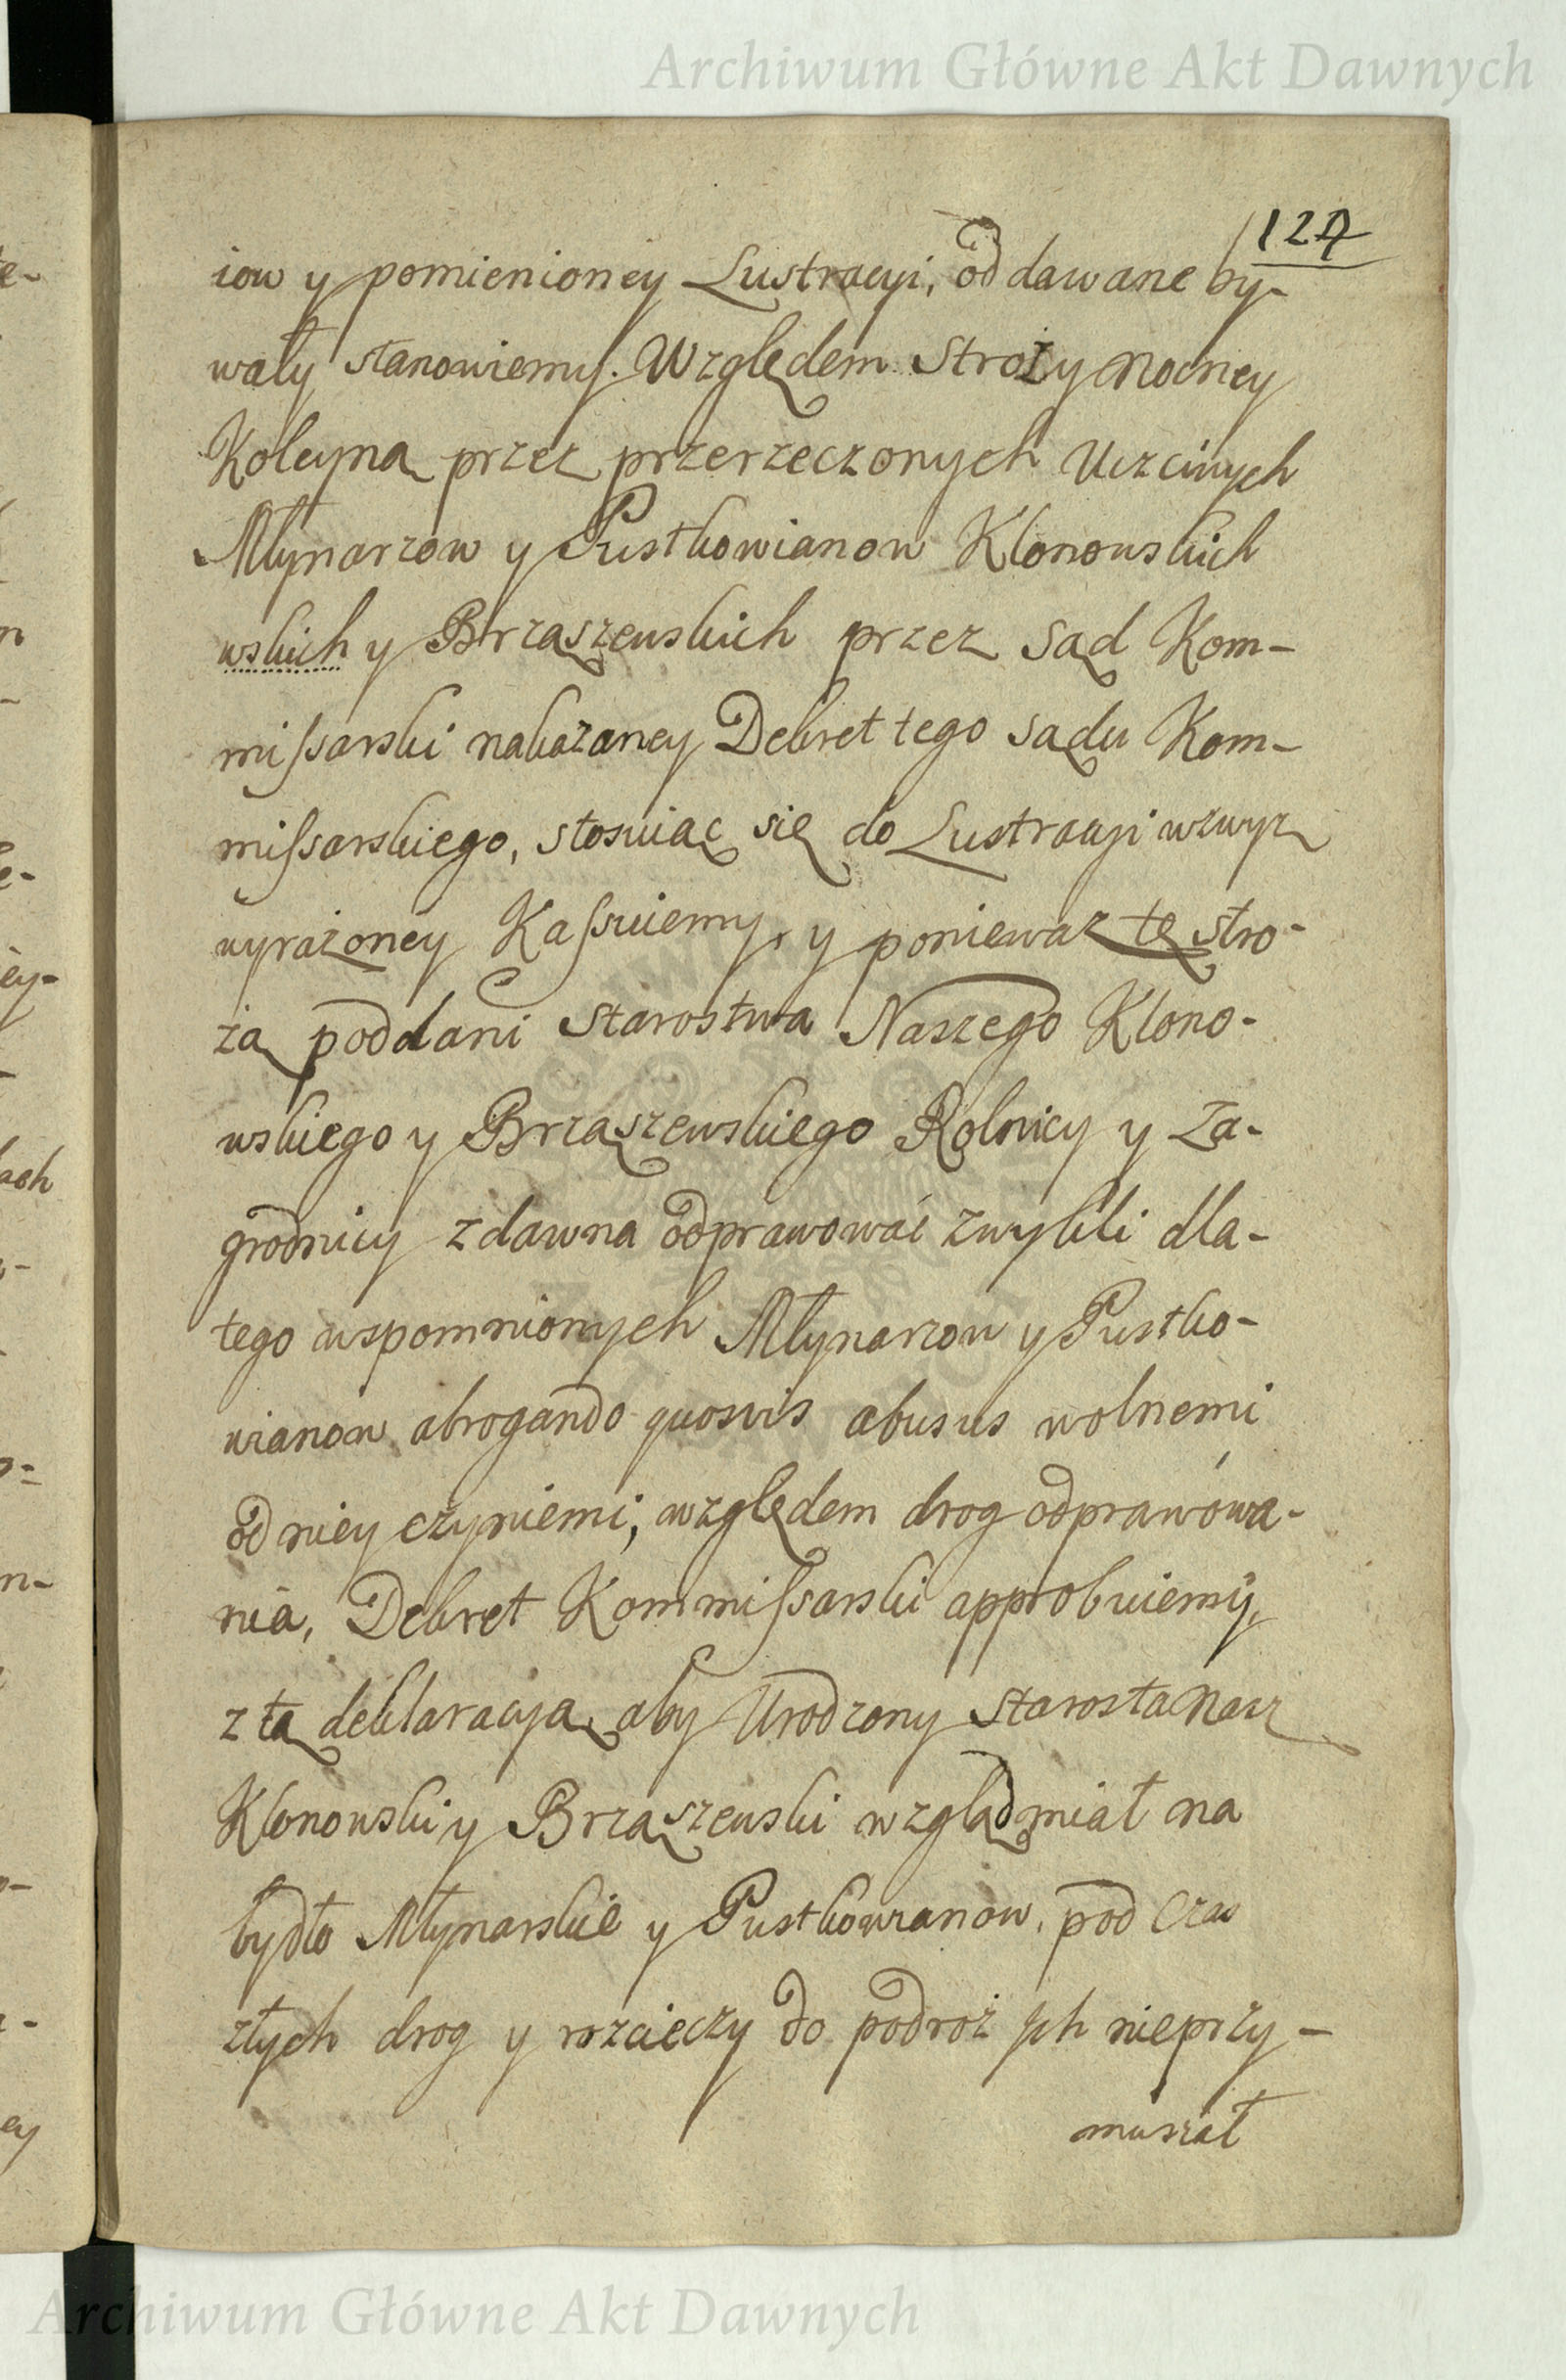 Archiwum Główne Akt Dawnych
127
iow y pomienioney Lustracyi, oddawane by-
wały stanowiemy. Względem Stroży Nocney
Koleyną przez przerzeczonych Uczciwych
Młynarzow y Pustkowianow Klonowskich
wskich y Brząszewskich przez Sąd Kom-
missarski nakazaney Dekret tego Sądu Kom-
missarskiego, stosuiąc się do Lustracyi wzwyz
wyrażoney Kassuiemy, y poniewaz tę stro-
żą poddani Starostwa Naszego Klono-
wskiego y Brząszewskiego Rolnicy y Za-
grodnicy zdawna odprawować zwykli dla-
tego wspomnionych Młynarzow y Pustko-
wianow abrogando quosvis abusus wolnemi
od niey czyniemi, względem drog odprawowa-
nia, Dekret Kommissarski approbuiemy,
z tą deklaracyą, aby Urodzony Starosta Nasz
Klonowski y Brząszewski wzgląd miał na
bydło Młynarskie y Pustkowianow, pod czas
złych drog y rozcieczy do podroż Jch nieprzy-
muszał
Archiwum Główne Akt Dawnych